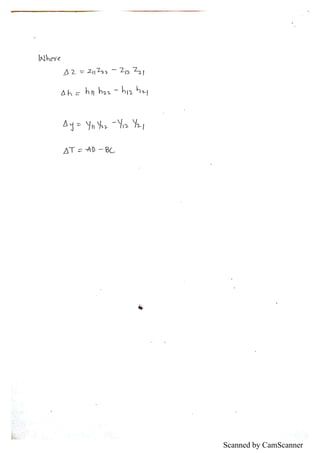 Where
Δz = z₁₁z₂₂ - z₁₂ z₂₁
Δh = h₁₁ h₂₂ - h₁₂ h₂₁
Δy = y₁₁ y₂₂ - y₁₂ y₂₁
ΔT = AD - BC
Scanned by CamScanner